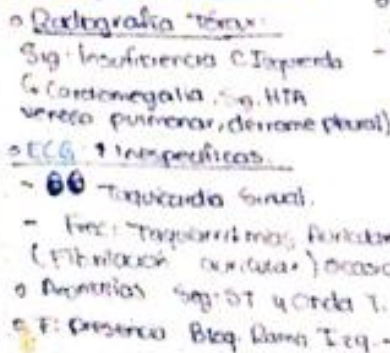 Radiografía Tórax:
Sig. Insuficiencia C Izquierda
Cardiomegalia, Sg. HTA
pulmonar, derrame pleural)
ECG Inespecíficas
- Taquicardia Sinual.
- Frec: Taquiarritmias Auricular
(Fibrilación auricular)
Sg: ST y Onda T.
F: presencia Bloq. Rama Izq.